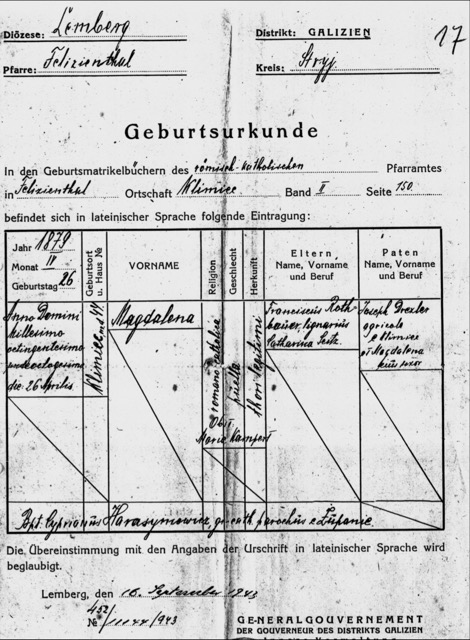 Diözese: Lemberg
Distrikt: GALIZIEN
17
Pfarre: Felizienthal
Kreis: Stryj
Geburtsurkunde
In den Geburtsmatrikelbüchern des römisch-katholischen Pfarramtes
in Felizienthal Ortschaft Klimiec Band II Seite 150
befindet sich in lateinischer Sprache folgende Eintragung:
Jahr 1879
Monat IV
Geburtstag 26
Geburtsort u. Haus №
VORNAME
Religion
Geschlecht
Herkunft
Eltern
Name, Vorname
und Beruf
Paten
Name, Vorname
und Beruf
Anno Domini
millesimo
octingentesimo
die 26 Aprilis
Klimiec
Magdalena
romano catholica
puella
thori legitimi
Obst.
Maria Kampert
Franciscus Roth
lignarius
Catharina Seitz
Joseph Drexler
agricola
e Klimiec
et Magdalena
eius uxor
Bapt. Cyprianus Harasymowicz gr. cath. parochus e Żupanie
Die Übereinstimmung mit den Angaben der Urschrift in lateinischer Sprache wird
beglaubigt.
Lemberg, den 16. September 1943
№
GENERALGOUVERNEMENT
DER GOUVERNEUR DES DISTRIKTS GALIZIEN